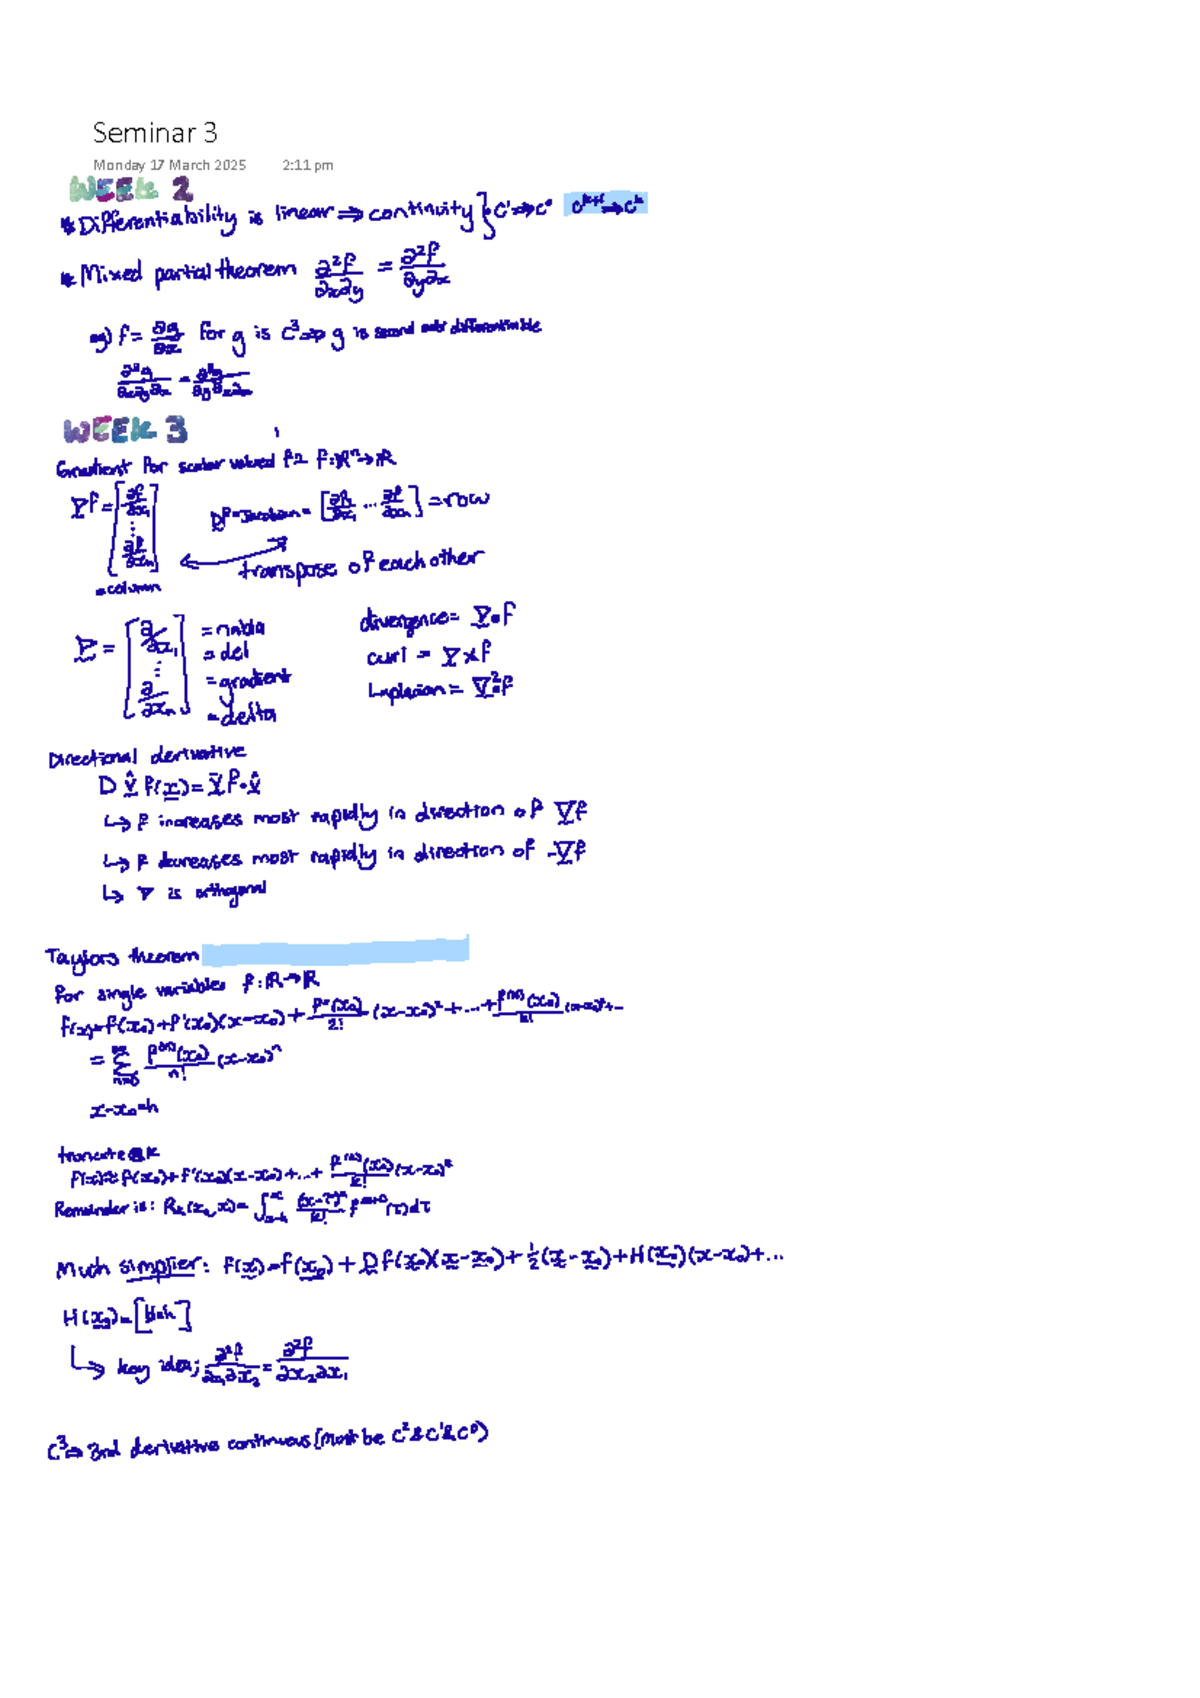 Seminar 3
Monday 17 March 2025 2:11 pm
WEEK 2
* Differentiability is linear ⇒ continuity } C¹⇒C⁰ Cᵏ⁺¹⇒Cᵏ
* Mixed partial theorem ∂²f/∂x∂y = ∂²f/∂y∂x
eg) f = ∂g/∂x for g is C³ ⇒ g is second differentiable
WEEK 3
Gradient for scalar valued fn f:ℝⁿ→ℝ
∇f = [∂f/∂x₁ ⋮ ∂f/∂xₙ] Df = Jacobian = [∂f/∂x₁ ... ∂f/∂xₙ] = row
transpose of each other
= column
∇ = [∂/∂x₁ ⋮ ∂/∂xₙ] = nabla
= del
= gradient
= delta
divergence = ∇·f
curl = ∇×f
Laplacian = ∇²f
Directional derivative
D v̂ f(x) = ∇f·v̂
↳ f increases most rapidly in direction of ∇f
↳ f decreases most rapidly in direction of -∇f
↳ ∇ is orthogonal
Taylors theorem
for single variables f:ℝ→ℝ
f(x)=f(x₀)+f'(x₀)(x-x₀)+f''(x₀)/2! (x-x₀)²+...+f⁽ᵏ⁾(x₀)/k! (x-x₀)ᵏ+...
= ∑ f⁽ⁿ⁾(x₀)/n! (x-x₀)ⁿ
x-x₀=h
truncate @ k
f(x)≈f(x₀)+f'(x₀)(x-x₀)+...+f⁽ᵏ⁾(x₀)/k! (x-x₀)ᵏ
Remainder is: Rₖ(x₀,x)=
Much simplier: f(x)=f(x₀)+Df(x₀)(x-x₀)+½(x-x₀)+H(x₀)(x-x₀)+...
H(x₀)=[blah]
↳ key idea; ∂²f/∂x₁∂x₂ = ∂²f/∂x₂∂x₁
C³⇒ 3rd derivative continuous (must be C² & C¹ & C⁰)